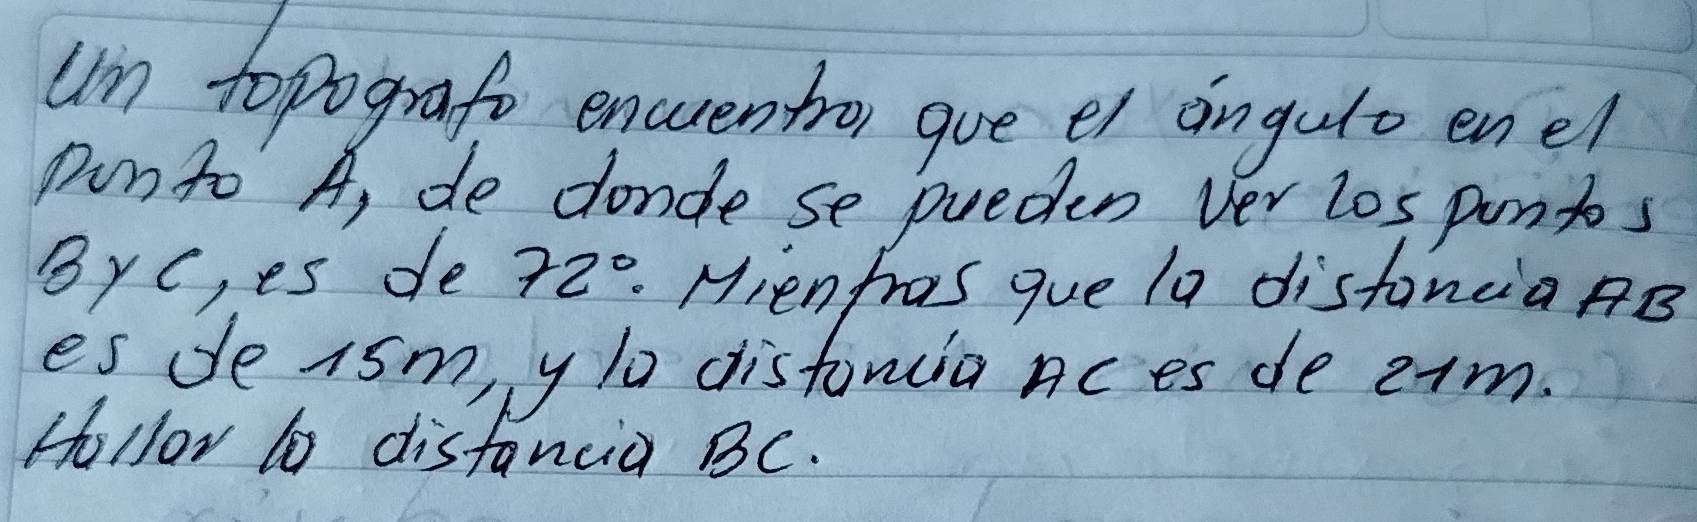 Un topografo encuentra que el ángulo en el
punto A, de donde se pueden ver los puntos
B y C, es de 72°. Mientras que la distancia AB
es de 15m, y la distancia AC es de 21m.
Hallar la distancia BC.